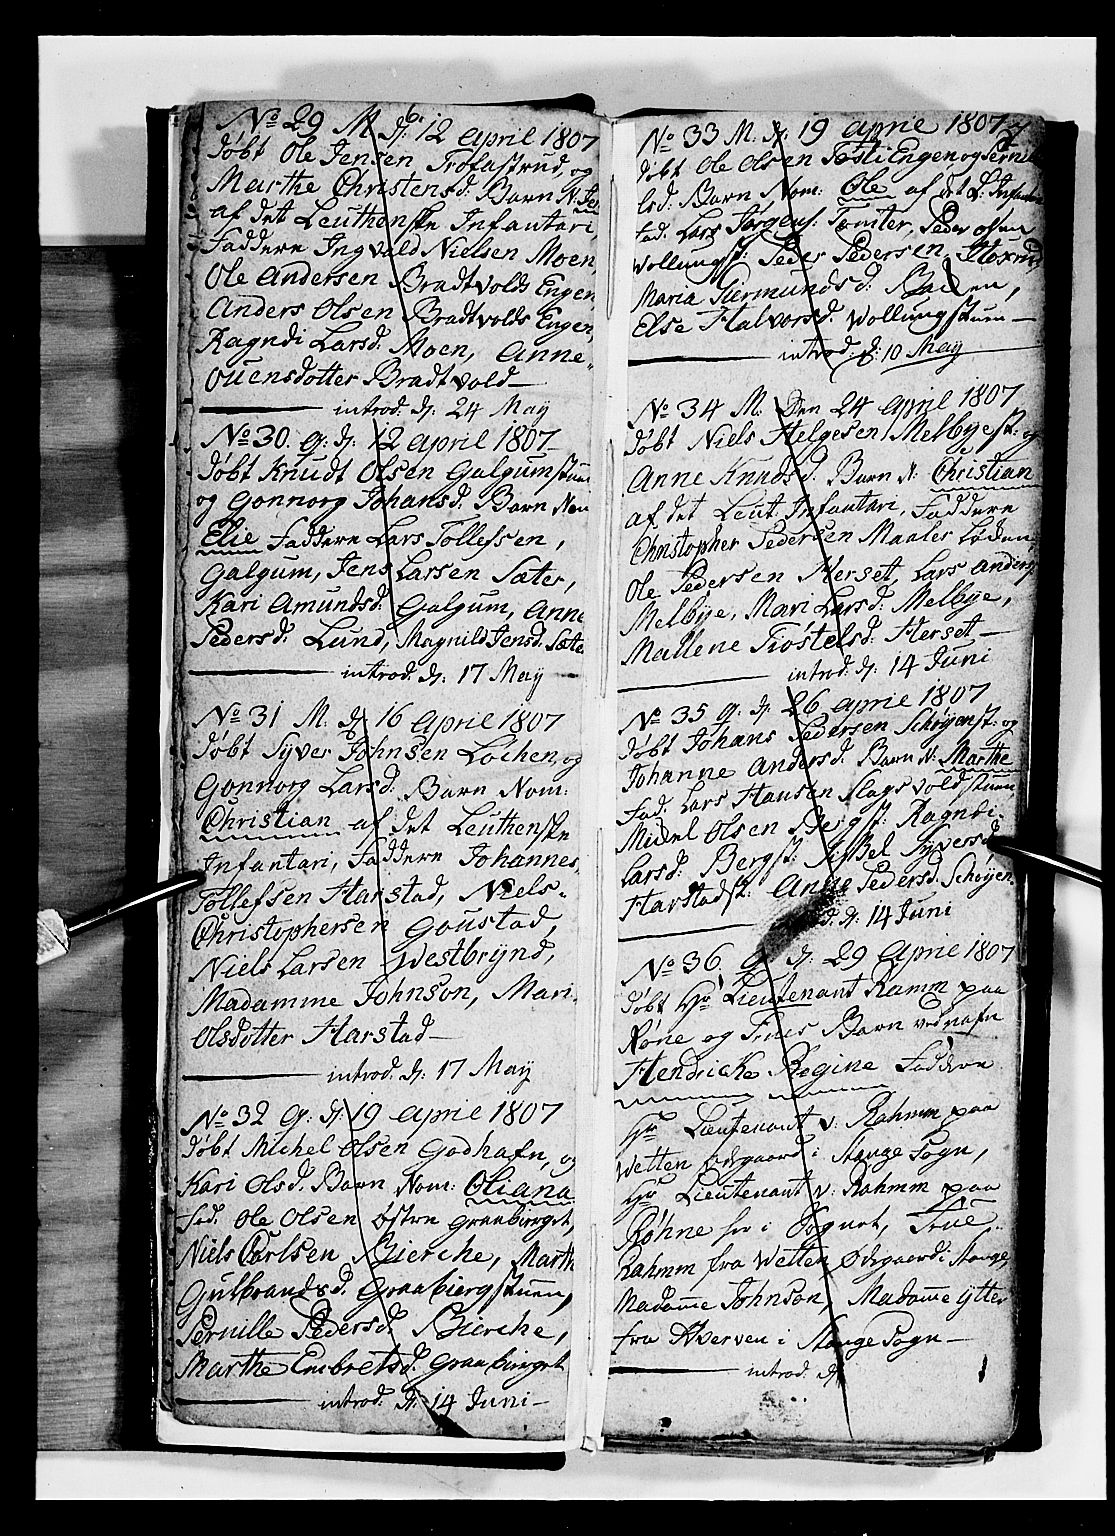 No 29 M. d: 12 April 1807
døbt Ole Jensen Trofastrud, og
Marthe Christensd: Barn N: Jen
af det Leuthenske Infantari,
Faddere Ingvald Nielsen Moen,
Ole Andersen Bradtvolds Engen,
Anders Olsen Bradtvolds Engen,
Ragndi Larsd: Moen, Anne
Ouensdotter Bradtvold—
introd: d: 24 May
No 30. Q: d: 12 April 1807—
døbt Knudt Olsen Galgumstuen
og Gonnorg Johansd: Barn Nom
Elie Faddere Lars Tollefsen,
Galgum, Jens Larsen Sæter,
Kari Amundsd: Galgum, Anne
Pedersd: Lund, Magnild Jensd: Sæte
introd: d: 17 May
No 31 M. d: 16 April 1807
døbt Syver Johnsen Løchen, og
Gonnorg Larsd: Barn Nom:
Christian af det Leuthenske
Infantari, Faddere Johannes
Tollefsen Harstad, Niels
Christophersen Goustad,
Niels Larsen Westbrynd,
Madamme Johnson, Mari
Olsdotter Harstad—
introd: d: 17 May
No 32 Q: d: 19 April 1807
døbt Michel Olsen Godhafn, og
Kari Olsd: Barn Nom: Oliana
Fad: Ole Olsen Østre Graabierget,
Niels Carlsen Bierche, Marth
Gulbrandsd: Graabiergstuen,
Pernille Pedersd: Bierche,
Marthe Embretsd: Graabierget
introd: d: 14 Juni—
No 33 M. d: 19 April 1807
døbt Ole Olsen Engen og
lsd: Barn Nom: Ole af det L: Infant
Fad: Lars Jørgens: Tomter, Peder Olsen
Wollungst: Peder Pedersen
Maria Giermundsd: Bakken,
Else Halvorsd: Wollungstuen—
introd: d: 10 May
No 34 M. Den 24 April 1807
døbt Niels Helgesen Melbyest: og
Anne Knudsd: Barn N: Christian
af det Leut: Infantari, Faddere
Christopher Pedersen Maaler Løden,
Ole Pedersen Herset, Lars Anders:
Melbye, Mari Larsd: Melbye,
Mallene Tiøstelsd: Herset—
introd: d: 14 Juni
No 35 Q: d: 26 April 1807
døbt Johans Pedersen Schøyenst: og
Johanne Andersd: Barn N: Marthe
Fad: Lars Hansen Slagsvoldstuen,
Michel Olsen Bergst: Ragndi
Larsd: Bergst: Sißel Syversd:
Harstadst: Anne Pedersd: Schøyen
d: 14 Juni
No 36. Q d: 29 April 1807
døbt Hr Lieutenant Ramm paa
Røne og Frues Barn ved nafn
Hendricke Regine Faddere
Hr Lieutenant v: Rahmm paa
Wetten Ødegaard i Stange Sogn,
Hr Lieutenant v: Rahmm paa
Røhne her i Sognet, Frue
Rahmm fra Wetten Ødegaard i Stange,
Madame Johnson, Madame Ytter
fra Kverven i Stange Sogn—
introd: d: